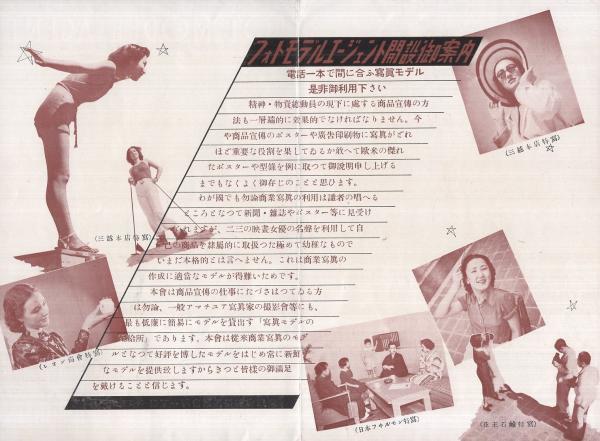 フォトモデルエージェント開設御案内
電話一本で間に合ふ寫眞モデル
是非御利用下さい
精神・物資總動員の現下に處する商品宣傳の方
法も一層端的に效果的でなければなりません。今
や商品宣傳のポスターや廣告印刷物に寫眞がどれ
ほど重要な役割を果してゐるか敢へて歐米の傑れ
たポスターや型錄を例に取つて御説明申し上げる
までもなくよく御存じのことと思ひます。
わが國でも勿論商業寫眞の利用は識者の唱へる
ところとなつて新聞・雜誌やポスター等に見受け
られますが、二三の映畫女優の名聲を利用して自
己の商品を隷屬的に取扱つた極めて幼稚なもので
いまだ本格的とは言へません。これは商業寫眞の
作成に適當なモデルが得難いためです。
本會は商品宣傳の仕事にたづさはつてゐる方
は勿論、一般アマチユア寫眞家の撮影會等にも、
最も低廉に簡易にモデルを貸出す「寫眞モデルの
給所」であります。本會は從來商業寫眞のモデ
ルとなつて好評を博したモデルをはじめ常に新鮮
なモデルを提供致しますからきつと皆樣の御滿足
を戴けることと信じます。
(三越本店特寫)
(三越本店特寫)
(レモン商會特寫)
(日本フヰルモン特寫)
(花王石鹼特寫)